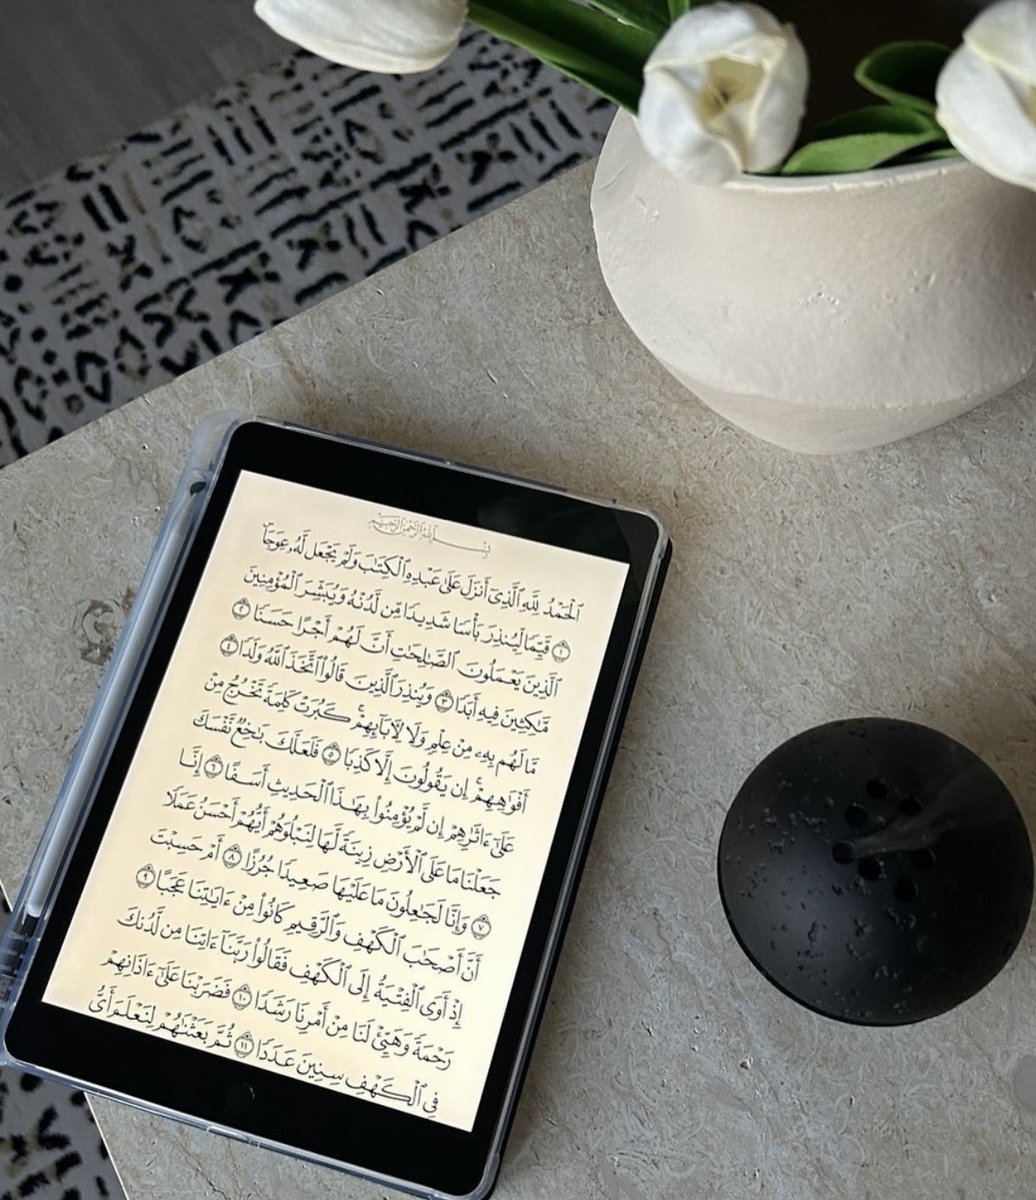 بِسْمِ ٱللَّهِ ٱلرَّحْمَٰنِ ٱلرَّحِيمِ
ٱلْحَمْدُ لِلَّهِ ٱلَّذِىٓ أَنزَلَ عَلَىٰ عَبْدِهِ ٱلْكِتَٰبَ وَلَمْ يَجْعَل لَّهُۥ عِوَجَاۜ
١ قَيِّمًا لِّيُنذِرَ بَأْسًا شَدِيدًا مِّن لَّدُنْهُ وَيُبَشِّرَ ٱلْمُؤْمِنِينَ
ٱلَّذِينَ يَعْمَلُونَ ٱلصَّٰلِحَٰتِ أَنَّ لَهُمْ أَجْرًا حَسَنًا ٢
مَّٰكِثِينَ فِيهِ أَبَدًا ٣ وَيُنذِرَ ٱلَّذِينَ قَالُوا۟ ٱتَّخَذَ ٱللَّهُ وَلَدًا ٤
مَّا لَهُم بِهِۦ مِنْ عِلْمٍ وَلَا لِـَٔابَآئِهِمْ ۚ كَبُرَتْ كَلِمَةً تَخْرُجُ مِنْ
أَفْوَٰهِهِمْ ۚ إِن يَقُولُونَ إِلَّا كَذِبًا ٥ فَلَعَلَّكَ بَٰخِعٌ نَّفْسَكَ
عَلَىٰٓ ءَاثَٰرِهِمْ إِن لَّمْ يُؤْمِنُوا۟ بِهَٰذَا ٱلْحَدِيثِ أَسَفًا ٦ إِنَّا
جَعَلْنَا مَا عَلَى ٱلْأَرْضِ زِينَةً لَّهَا لِنَبْلُوَهُمْ أَيُّهُمْ أَحْسَنُ عَمَلًا
٧ وَإِنَّا لَجَٰعِلُونَ مَا عَلَيْهَا صَعِيدًا جُرُزًا ٨ أَمْ حَسِبْتَ
أَنَّ أَصْحَٰبَ ٱلْكَهْفِ وَٱلرَّقِيمِ كَانُوا۟ مِنْ ءَايَٰتِنَا عَجَبًا ٩
إِذْ أَوَى ٱلْفِتْيَةُ إِلَى ٱلْكَهْفِ فَقَالُوا۟ رَبَّنَآ ءَاتِنَا مِن لَّدُنكَ
رَحْمَةً وَهَيِّئْ لَنَا مِنْ أَمْرِنَا رَشَدًا ١٠ فَضَرَبْنَا عَلَىٰٓ ءَاذَانِهِمْ
فِى ٱلْكَهْفِ سِنِينَ عَدَدًا ١١ ثُمَّ بَعَثْنَٰهُمْ لِنَعْلَمَ أَىُّ